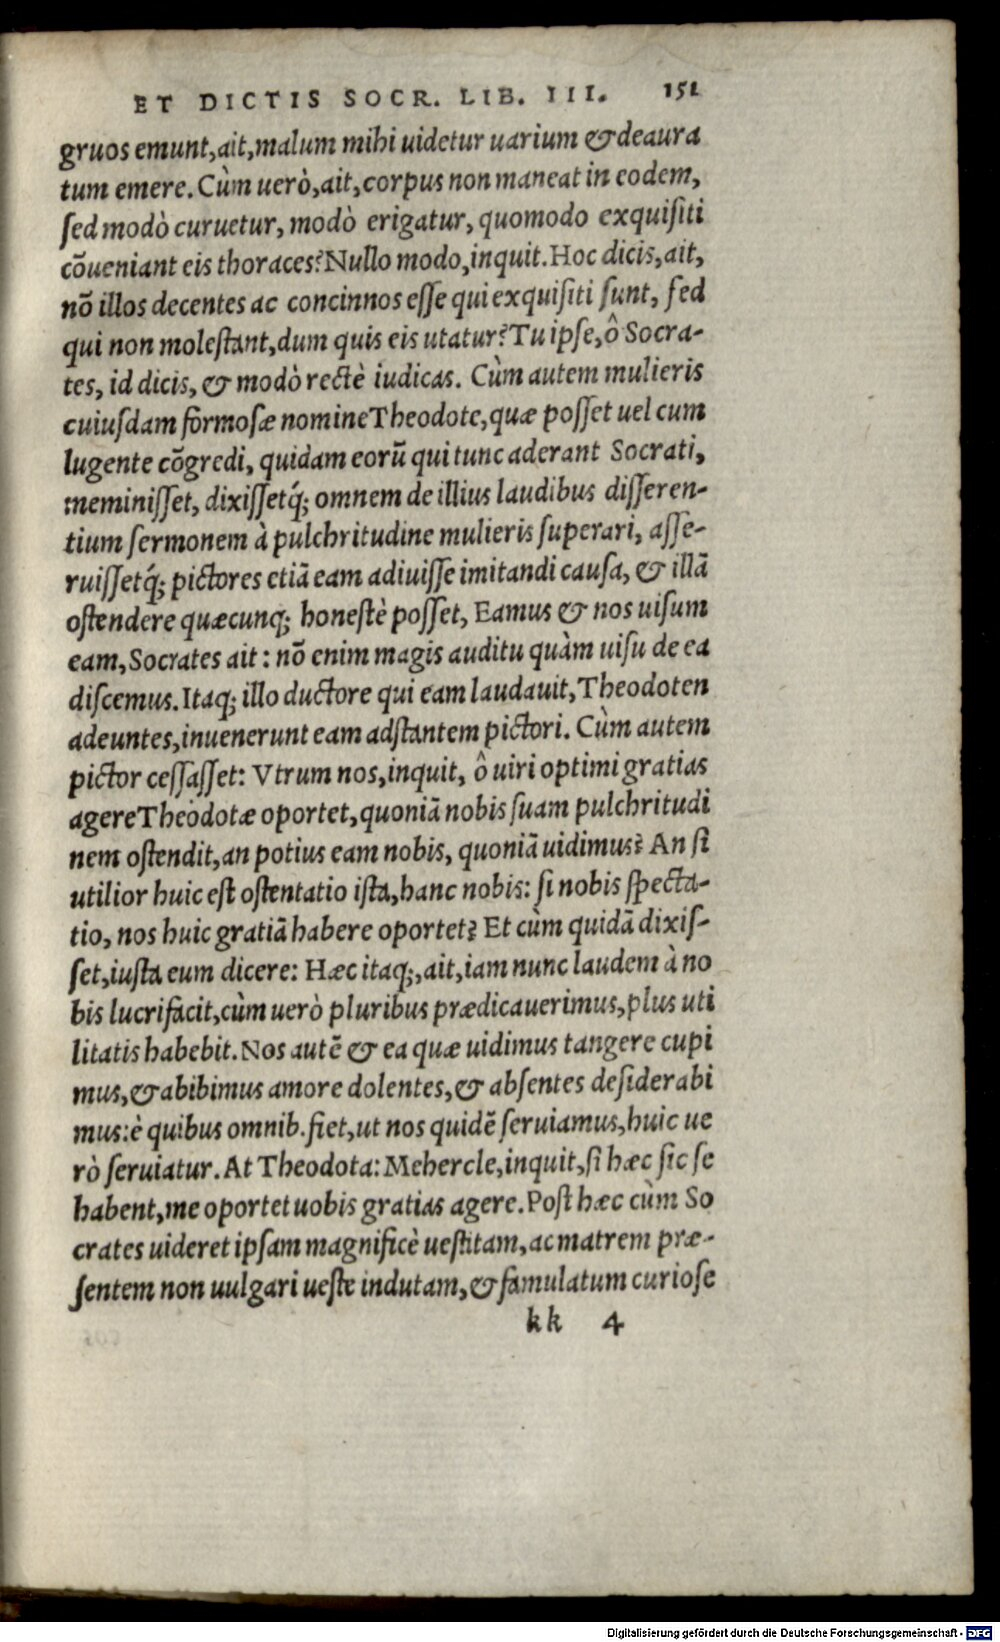 ET DICTIS SOCR. LIB. III. 151
gruos emunt,ait,malum mihi uidetur uarium & deaura
tum emere. Cùm uerò,ait,corpus non maneat in eodem,
ſed modò curuetur, modò erigatur, quomodo exquiſiti
cõueniant eis thoraces? Nullo modo,inquit. Hoc dicis,ait,
nõ illos decentes ac concinnos eſſe qui exquiſiti ſunt, ſed
qui non moleſtant,dum quis eis utatur? Tu ipſe,ô Socra-
tes, id dicis, & modò rectè iudicas. Cùm autem mulieris
cuiuſdam formoſæ nomine Theodote,quæ poſſet uel cum
lugente cõgredi, quidam eorũ qui tunc aderant Socrati,
meminiſſet, dixiſſetq́; omnem de illius laudibus diſſeren-
tium ſermonem à pulchritudine mulieris ſuperari, aſſe-
ruiſſetq́; pictores etiã eam adiuiſſe imitandi cauſa, & illã
oſtendere quæcunq; honeſtè poſſet, Eamus & nos uiſum
eam, Socrates ait: nõ enim magis auditu quàm uiſu de ea
diſcemus. Itaq; illo ductore qui eam laudauit, Theodoten
adeuntes,inuenerunt eam adſtantem pictori. Cùm autem
pictor ceſſaſſet: Vtrum nos,inquit, ô uiri optimi gratias
agere Theodotæ oportet,quoniã nobis ſuam pulchritudi
nem oſtendit,an potius eam nobis, quoniã uidimus? An ſi
utilior huic eſt oſtentatio iſta,hanc nobis: ſi nobis ſpecta-
tio, nos huic gratiã habere oportet? Et cùm quidã dixiſ-
ſet,iuſta eum dicere: Hæc itaq;,ait,iam nunc laudem à no
bis lucrifacit,cùm uerò pluribus prædicauerimus,plus uti
litatis habebit. Nos autẽ & ea quæ uidimus tangere cupi
mus,& abibimus amore dolentes,& abſentes deſiderabi
mus: è quibus omnib. fiet,ut nos quidẽ ſeruiamus,huic ue
rò ſeruiatur. At Theodota: Mehercle,inquit,ſi hæc ſic ſe
habent,me oportet uobis gratias agere. Poſt hæc cùm So
crates uideret ipſam magnificè ueſtitam,ac matrem præ-
ſentem non uulgari ueſte indutam,& famulatum curioſe
kk 4
Digitalisierung gefördert durch die Deutsche Forschungsgemeinschaft - DFG